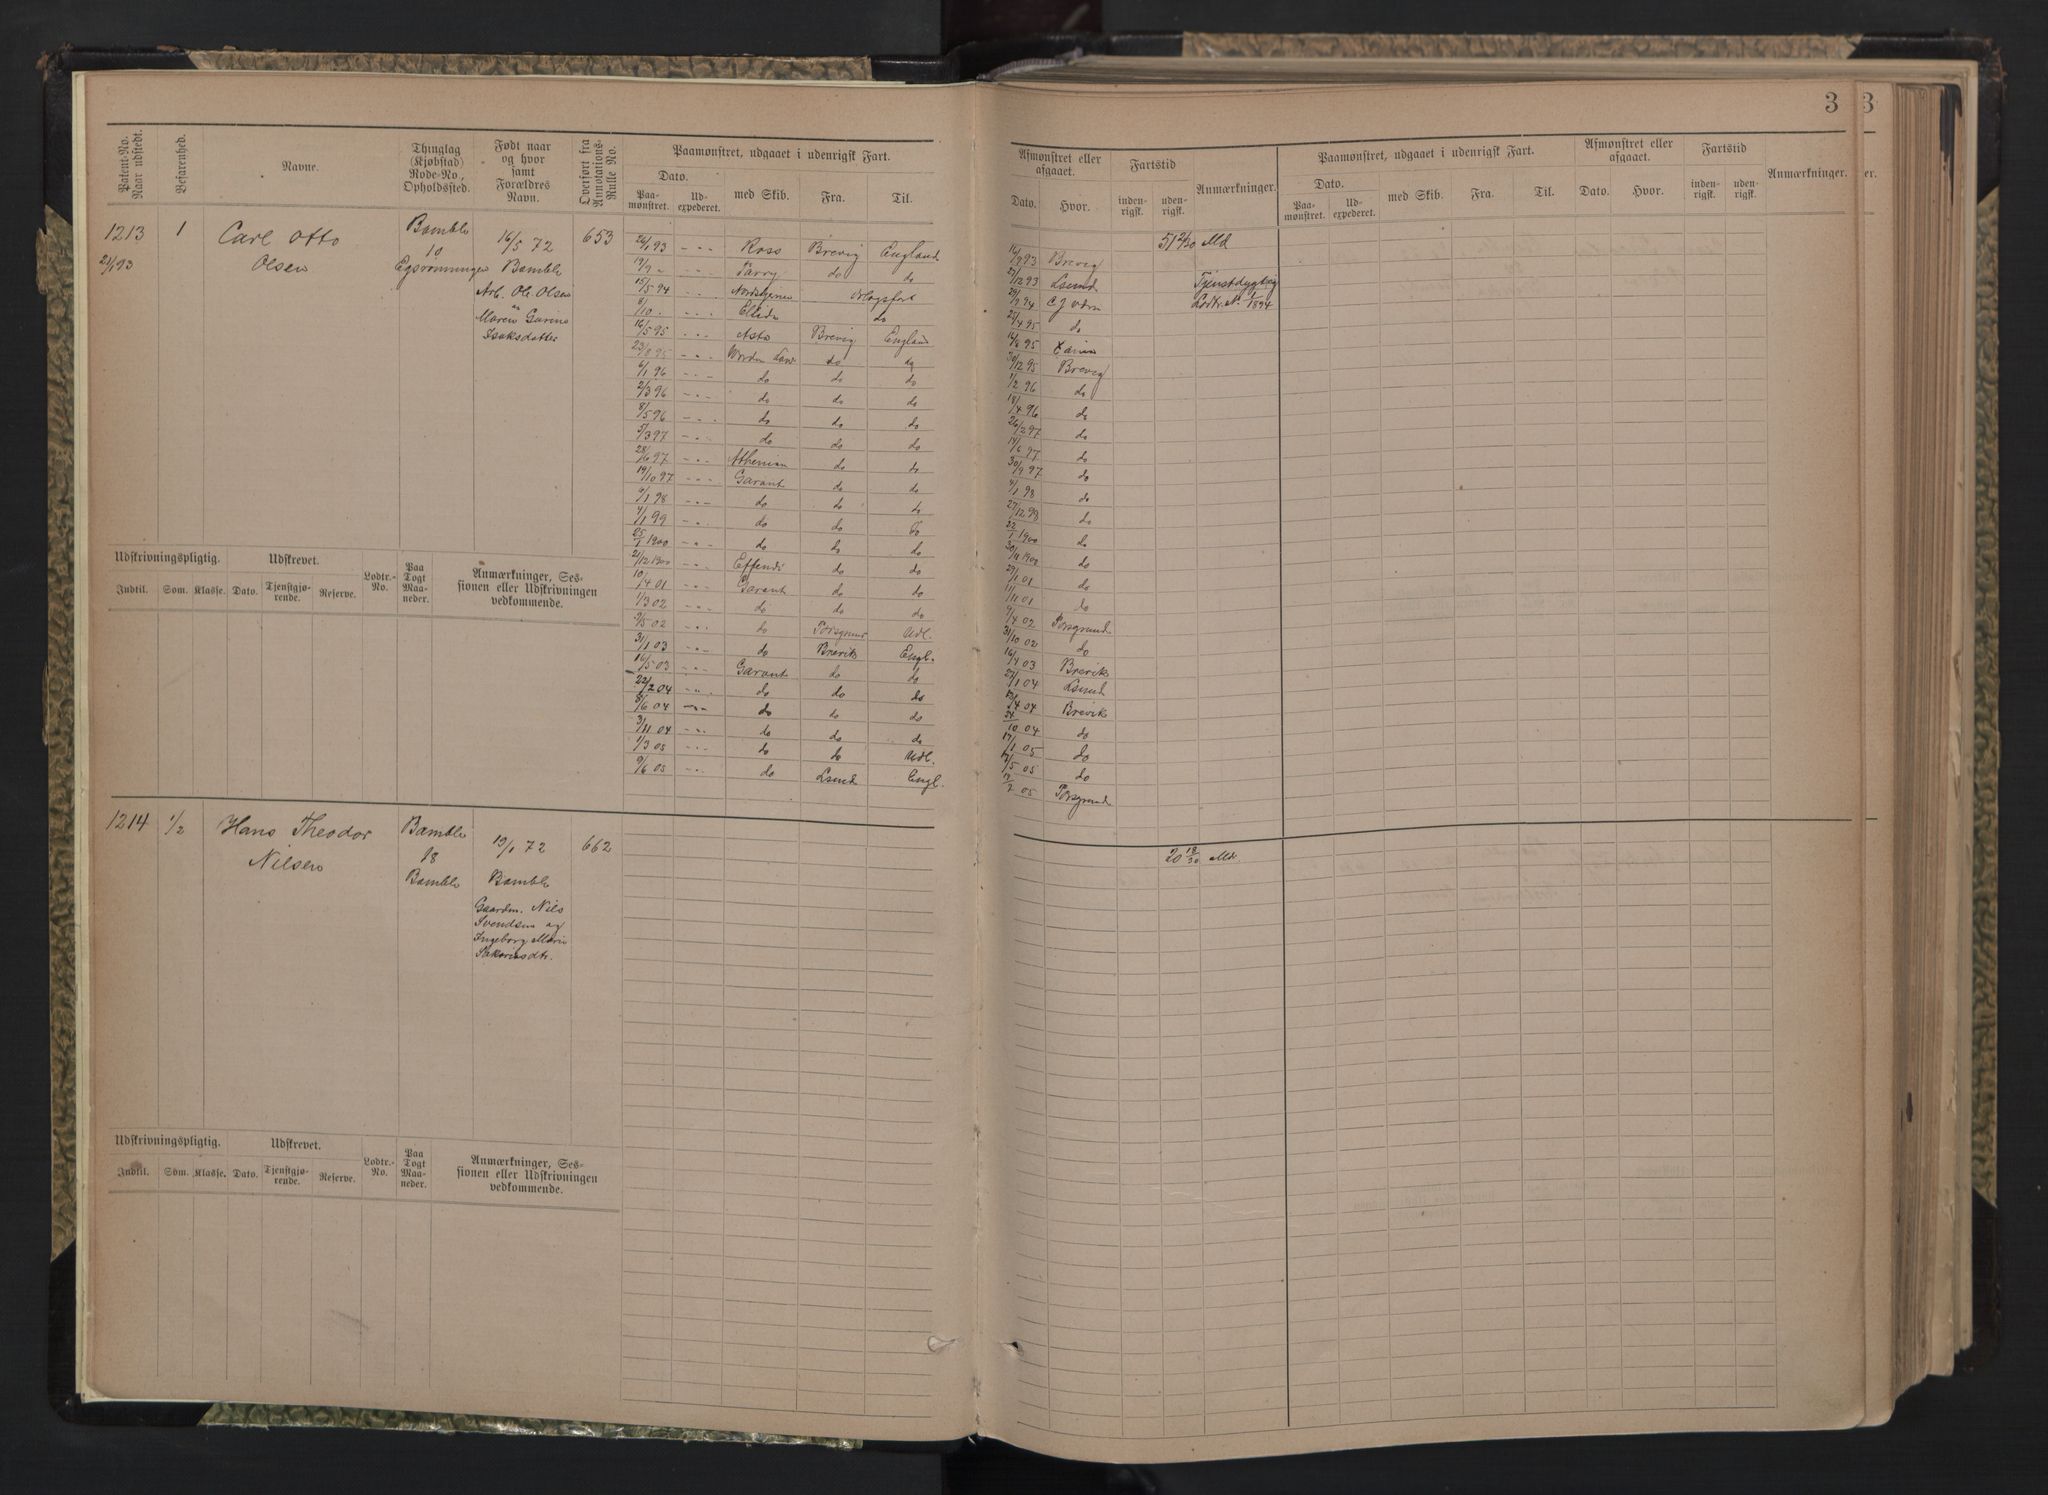 3
3
Patent-No. Naar udstedt.
Befarenhed.
Navne.
Thinglag (Kjøbstad) Rode-No, Opholdssted.
Født naar og hvor samt Forældres Navn.
Overført fra Annotations-Rulle No.
Paamønstret, udgaaet i udenrigsk Fart.
Dato.
Paamønstret.
Udexpederet.
med Skib.
Fra.
Til.
Afmønstret eller afgaaet.
Dato.
Hvor.
Fartstid
indenrigsk.
udenrigsk.
Anmærkninger.
Paamønstret, udgaaet i udenrigsk Fart.
Dato.
Paamønstret.
Udexpederet.
med Skib.
Fra.
Til.
Afmønstret eller afgaaet.
Dato.
Hvor.
Fartstid
indenrigsk.
udenrigsk.
Anmærkninger.
er.
1213
21/1 93
1
Carl Otto
Olsen
Bamble
10
Egsrønningen
16/5 72
Bamble
Arb. Ole Olsen
Maren Gurine
Isaksdatter
653
26/1 93 Ross Brevig England
19/9 Parry do do
15/5 94 Nordstjernen Orlogsfart
8/10 do
16/5 95 Asta Brevig England
23/8 95 do do
6/1 96 do do do
2/3 96 do do do
8/5 96 do do do
5/3 97 do do do
28/6 97 Athenian do do
19/10 97 Garant do do
9/1 98 do do do
4/1 99 do do
25/1 1900 do do do
21/12 1900 Effendi do do
10/4 01 Garant do do
1/3 02 do do do
9/5 02 do Porsgrund Udl.
31/1 03 do Brevik Engl.
16/5 03 Garant do do
22/2 04 do do do
8/6 04 do do do
3/11 04 do do do
1/3 05 do do Udl.
9/6 05 do Lsund Engl.
51 2/30 Md
16/9 93 Brevig
27/12 93 Lsund
Tjenstdygtig
Lodtr. No 1/1894
25/4 95 do
30/12 95 Brevig
1/2 96 do
18/4 96 do
26/2 97 do
14/6 97 do
30/9 97 do
4/1 98 do
27/12 98 do
22/1 1900 do
30/11 1900 do
29/1 01 do
11/11 01 do
9/4 02 Porsgrund
31/10 02 do
16/4 03 Brevik
27/1 04 Lsund
Brevik
10 04 do
17/1 05 do
17/5 05 do
05 Porsgrund
Udskrivningspligtig.
Udskrevet.
Indtil.
Som.
Klasse.
Dato.
Tjenstgjørende.
Reserve.
Lodtr.-No.
Paa Togt Maaneder.
Anmærkninger, Sessionen eller Udskrivningen vedkommende.
1214
1/2
Hans Theodor
Nilsen
Bamble
18
Bamble
19/1 72
Bamble
Gaardm. Nils
Svendsen og
Ingeborg Marie
Sakariasdtr.
662
20 18/30 Md.
Udskrivningspligtig.
Udskrevet.
Indtil.
Som.
Klasse.
Dato.
Tjenstgjørende.
Reserve.
Lodtr.-No.
Paa Togt Maaneder.
Anmærkninger, Sessionen eller Udskrivningen vedkommende.